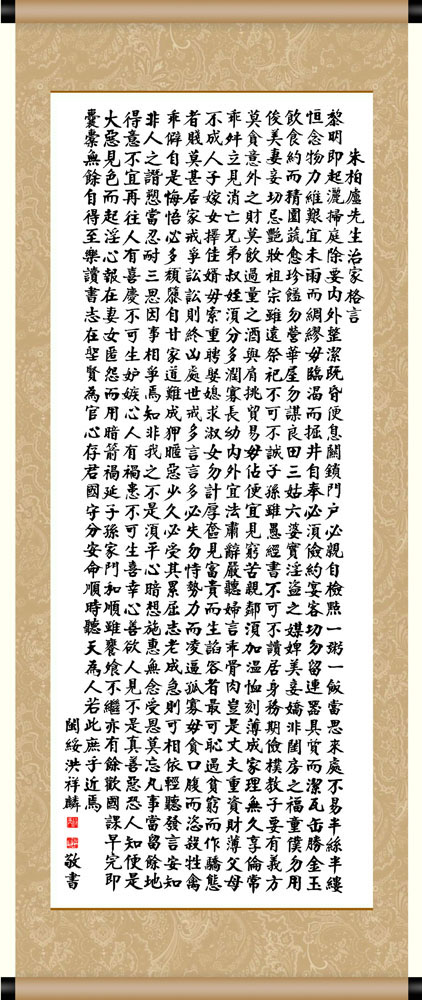 朱柏廬先生治家格言
黎明即起灑掃庭除要內外整潔既昏便息關鎖門戶必親自檢點一粥一飯當思來處不易半絲半縷
恒念物力維艱宜未雨而綢繆毋臨渴而掘井自奉必須儉約宴客切勿留連器具質而潔瓦缶勝金玉
飲食約而精園蔬愈珍饈勿營華屋勿謀良田三姑六婆實淫盜之媒婢美妾嬌非閨房之福童僕勿用
俊美妻妾切忌艷妝祖宗雖遠祭祀不可不誠子孫雖愚經書不可不讀居身務期儉樸教子要有義方
莫貪意外之財莫飲過量之酒與肩挑貿易毋佔便宜見窮苦親鄰須加溫恤刻薄成家理無久享倫常
乖舛立見消亡兄弟叔姪須分多潤寡長幼內外宜法肅辭嚴聽婦言乖骨肉豈是丈夫重資財薄父母
不成人子嫁女擇佳婿毋索重聘娶媳求淑女勿計厚奩見富貴而生諂容者最可恥遇貧窮而作驕態
者賤莫甚居家戒爭訟訟則終凶處世戒多言言多必失勿恃勢力而凌逼孤寡毋貪口腹而恣殺牲禽
乖僻自是悔悟必多頹隳自甘家道難成狎暱惡少久必受其累屈志老成急則可相依輕聽發言安知
非人之譖愬當忍耐三思因事相爭焉知非我之不是須平心暗想施惠無念受恩莫忘凡事當留餘地
得意不宜再往人有喜慶不可生妒嫉心人有禍患不可生喜幸心善欲人見不是真善惡恐人知便是
大惡見色而起淫心報在妻女匿怨而用暗箭禍延子孫家門和順雖饔飧不繼亦有餘歡國課早完即
囊橐無餘自得至樂讀書志在聖賢為官心存君國守分安命順時聽天為人若此庶乎近焉
閩綏洪祥麟
敬書